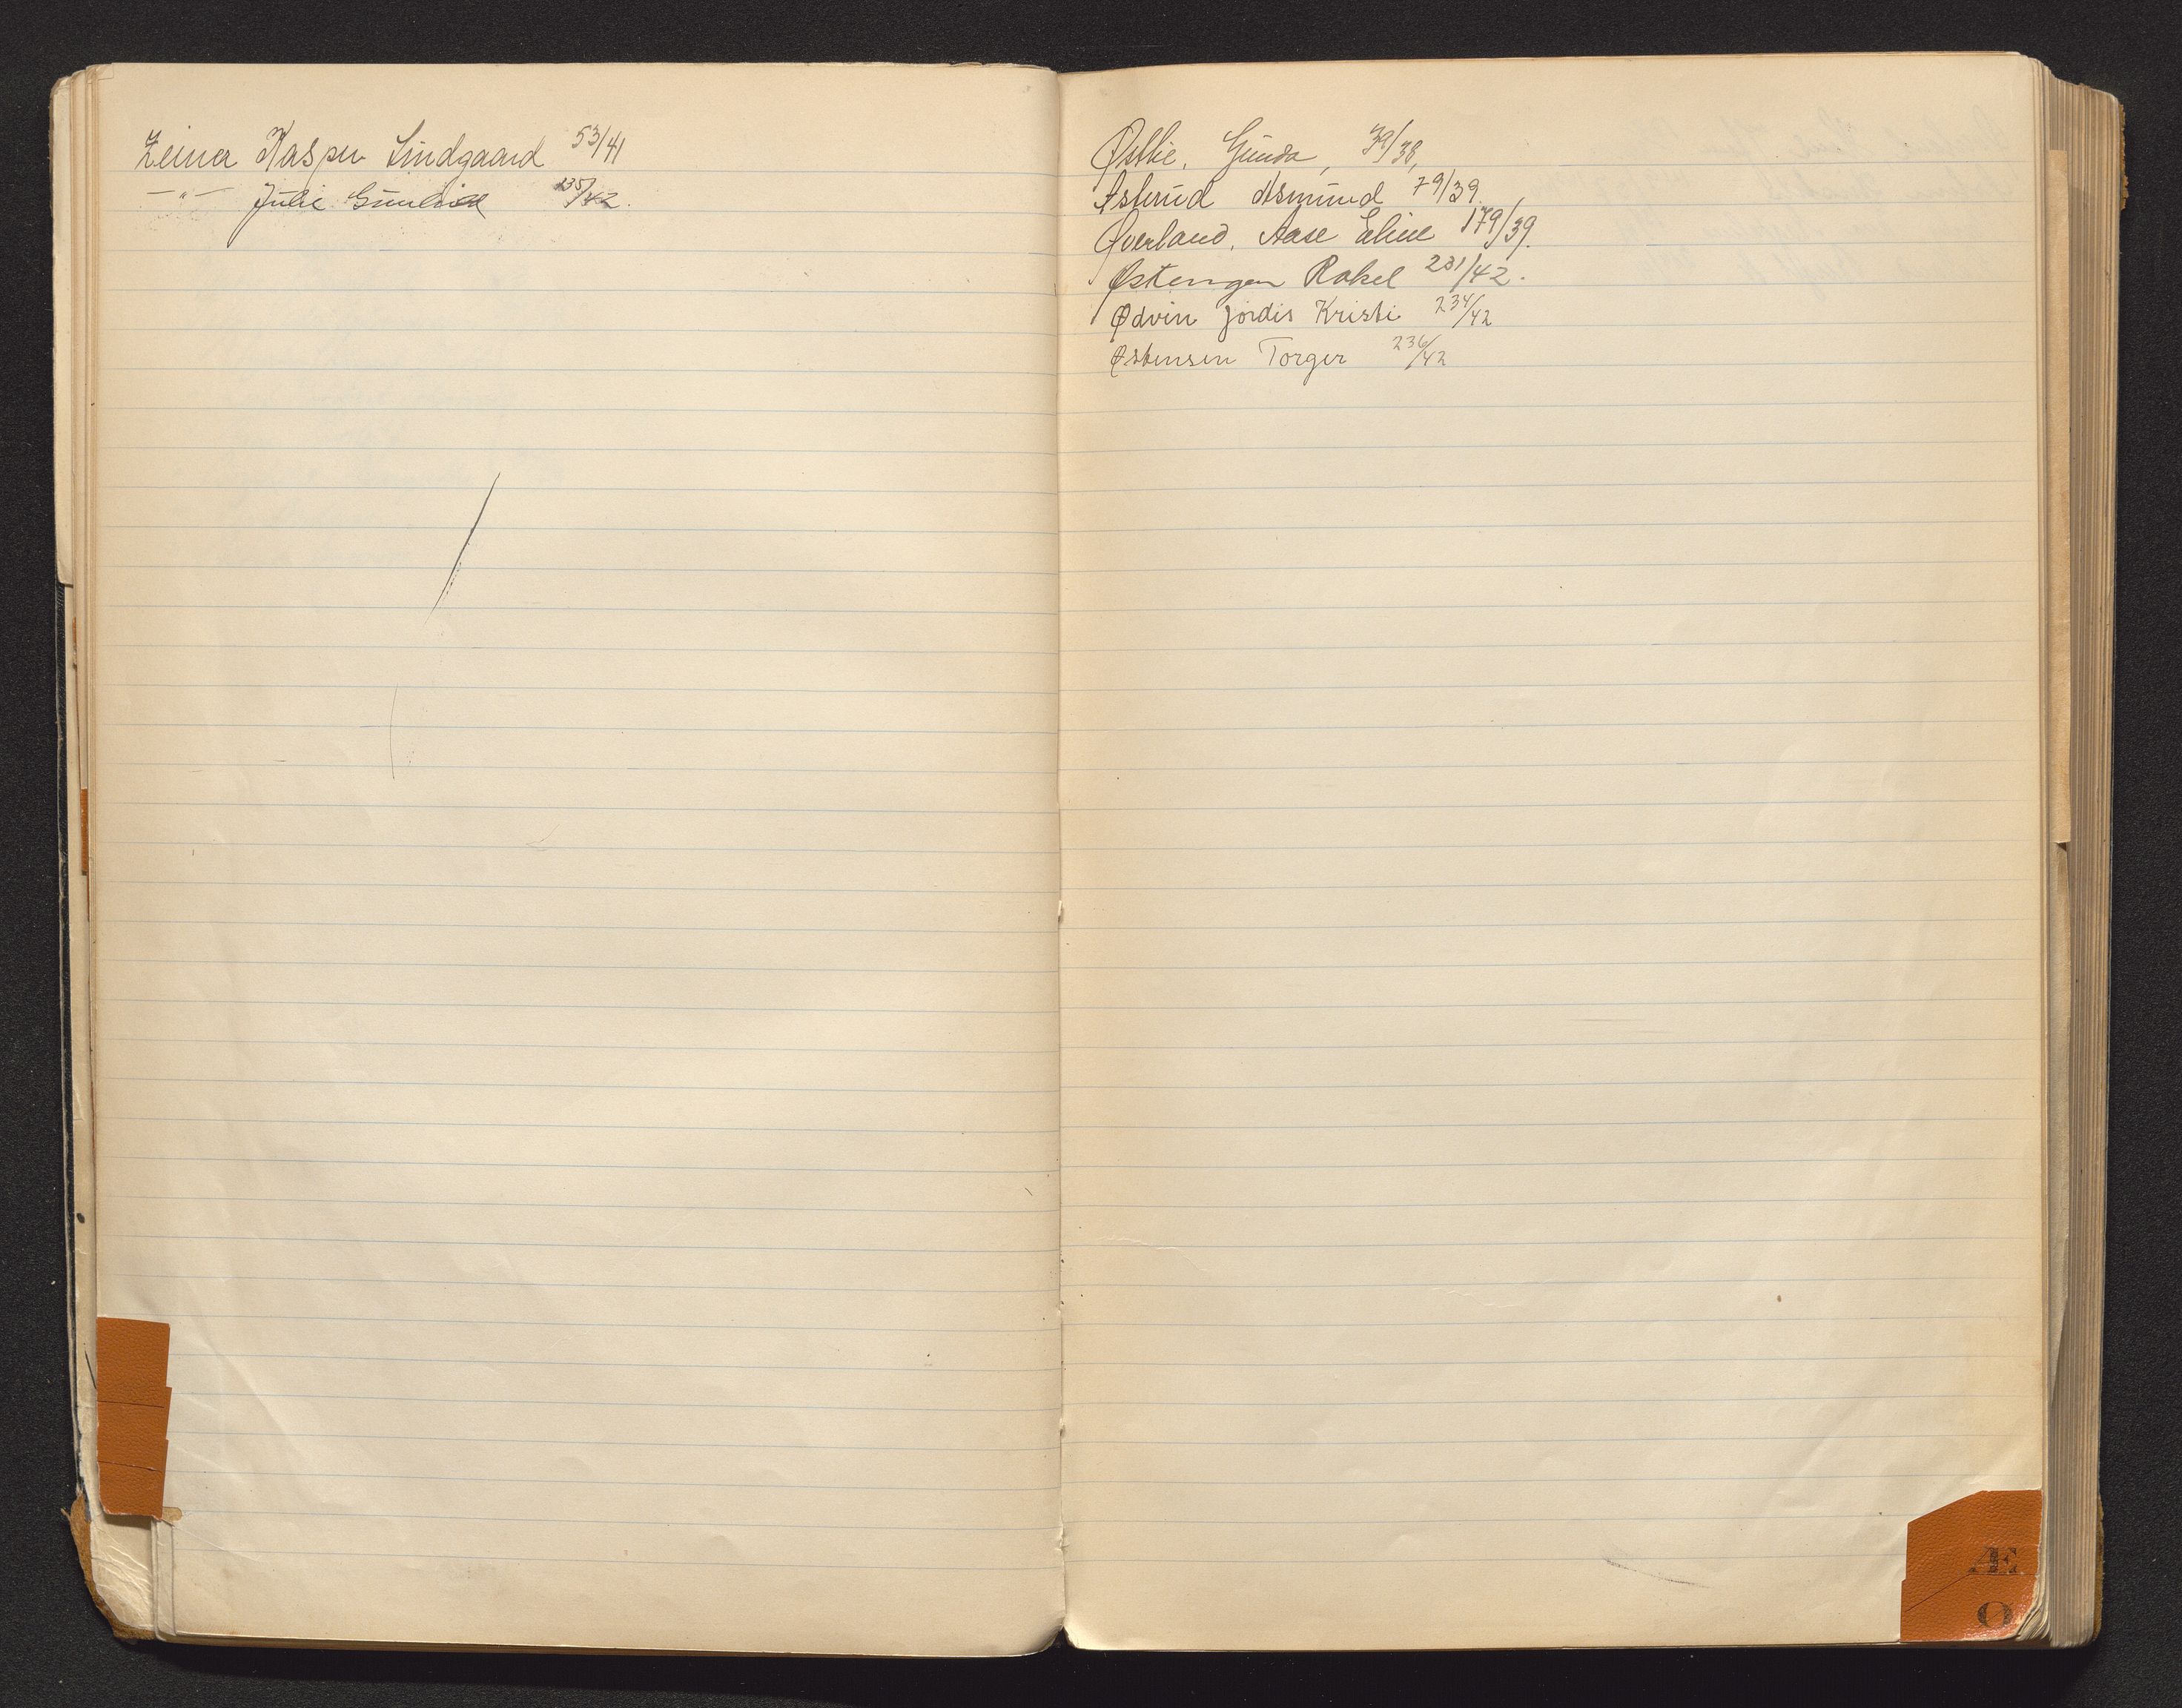 Zeiner Kasper Lindgaard 53/41
— " — Julie 135/42.
Østlie, Gunda, 39/38,
Østerud Asmund 79/39.
Øverland, Aase Eline 179/39.
Østengen Rakel 231/42.
Ødvin Jordis Kristi 234/42
Østensen Torger 236/42
Æ
Ø